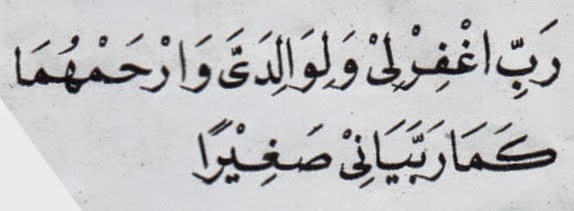 رَبِّ اغْفِرْلِيْ وَلِوَالِدَيَّ وَارْحَمْهُمَا
كَمَا رَبَّيَانِيْ صَغِيْرًا